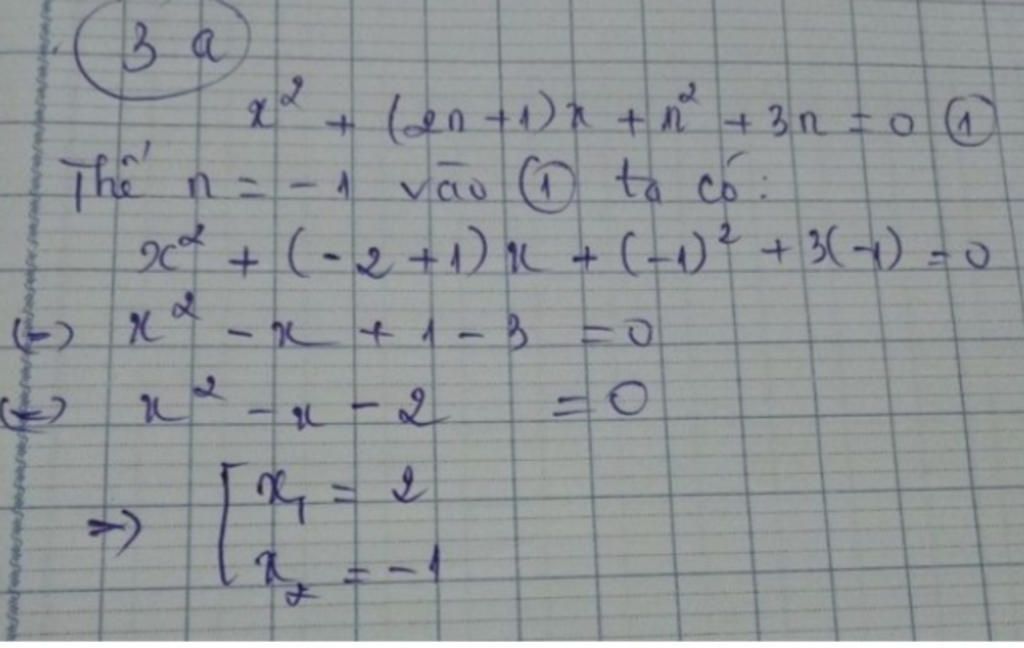 3 a
x² + (2n+1)x + n² + 3n = 0 ①
Thế n = -1 vào ① ta có:
x² + (-2+1)x + (-1)² + 3(-1) = 0
(-) x² - x + 1 - 3 = 0
(-) x² - x - 2 = 0
=> [ x₁ = 2
x₂ = -1